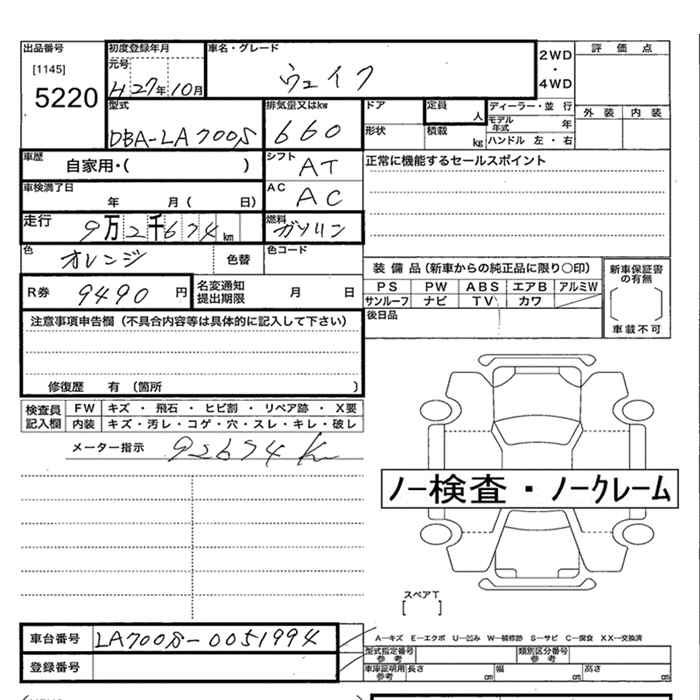 出品番号
[1145]
5220
初度登録年月
元号
H 27年 10月
車名・グレード
ウェイク
2WD
・
4WD
評価点
外装 内装
型式
DBA-LA700S
排気量又はkw
660
ドア
形状
定員
人
積載
kg
ディーラー・並 行
モデル年式 年
ハンドル 左・右
車歴
自家用・( )
シフト
AT
正常に機能するセールスポイント
車検満了日
年 月 ( 日)
AC
AC
走行
9万2千674km
燃料
ガソリン
色
オレンジ
色替
色コード
装備品(新車からの純正品に限り○印)
PS PW ABS エアB アルミW
サンルーフ ナビ TV カワ
新車保証書
の有無
車載不可
R券 9490 円
名変通知
提出期限
月 日
後日品
注意事項申告欄(不具合内容等は具体的に記入して下さい)
修復歴 有 (箇所 )
検査員
記入欄
FW キズ ・ 飛石 ・ ヒビ割 ・ リペア跡 ・ X要
内装 キズ・汚レ・コゲ・穴・スレ・キレ・破レ
メーター指示 92674 K
ノー検査・ノークレーム
スペアT
[ ]
車台番号 LA700S-0051994
登録番号
A−キズ E−エクボ U−凹み W−補修跡 S−サビ C−腐食 XX−交換済
型式指定番号
参考
類別区分番号
参考
車庫証明用
参考
長さ cm 幅 cm 高さ cm